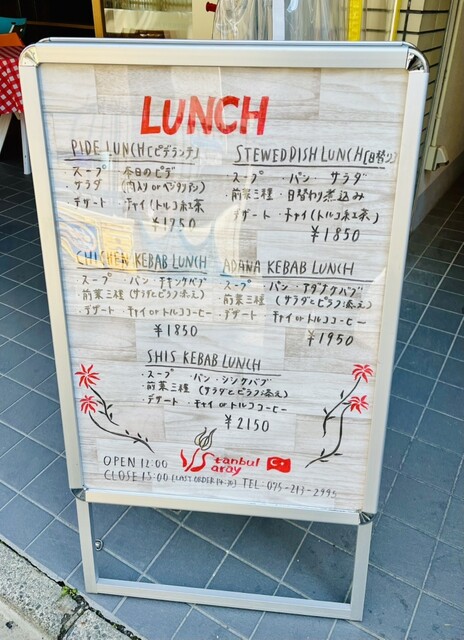 LUNCH
PIDE LUNCH [ピデランチ]
・スープ ・本日のピデ
・サラダ (肉入り or ベジタリアン)
・デザート ・チャイ (トルコ紅茶)
¥1750
STEWED DISH LUNCH [日替り]
・スープ ・パン ・サラダ
・前菜三種 ・日替わり煮込み
・デザート ・チャイ (トルコ紅茶)
¥1850
CHICKEN KEBAB LUNCH
・スープ ・パン ・チキンケバブ
・前菜三種 (サラダとピラフ添え)
・デザート ・チャイ or トルココーヒー
¥1850
ADANA KEBAB LUNCH
・スープ ・パン ・アダナケバブ
・前菜三種 (サラダとピラフ添え)
・デザート ・チャイ or トルココーヒー
¥1950
SHIS KEBAB LUNCH
・スープ ・パン ・シシケバブ
・前菜三種 (サラダとピラフ添え)
・デザート ・チャイ or トルココーヒー
¥2150
Istanbul
Saray
OPEN 12:00
CLOSE 15:00 (LAST ORDER 14:30) TEL: 075-213-2995